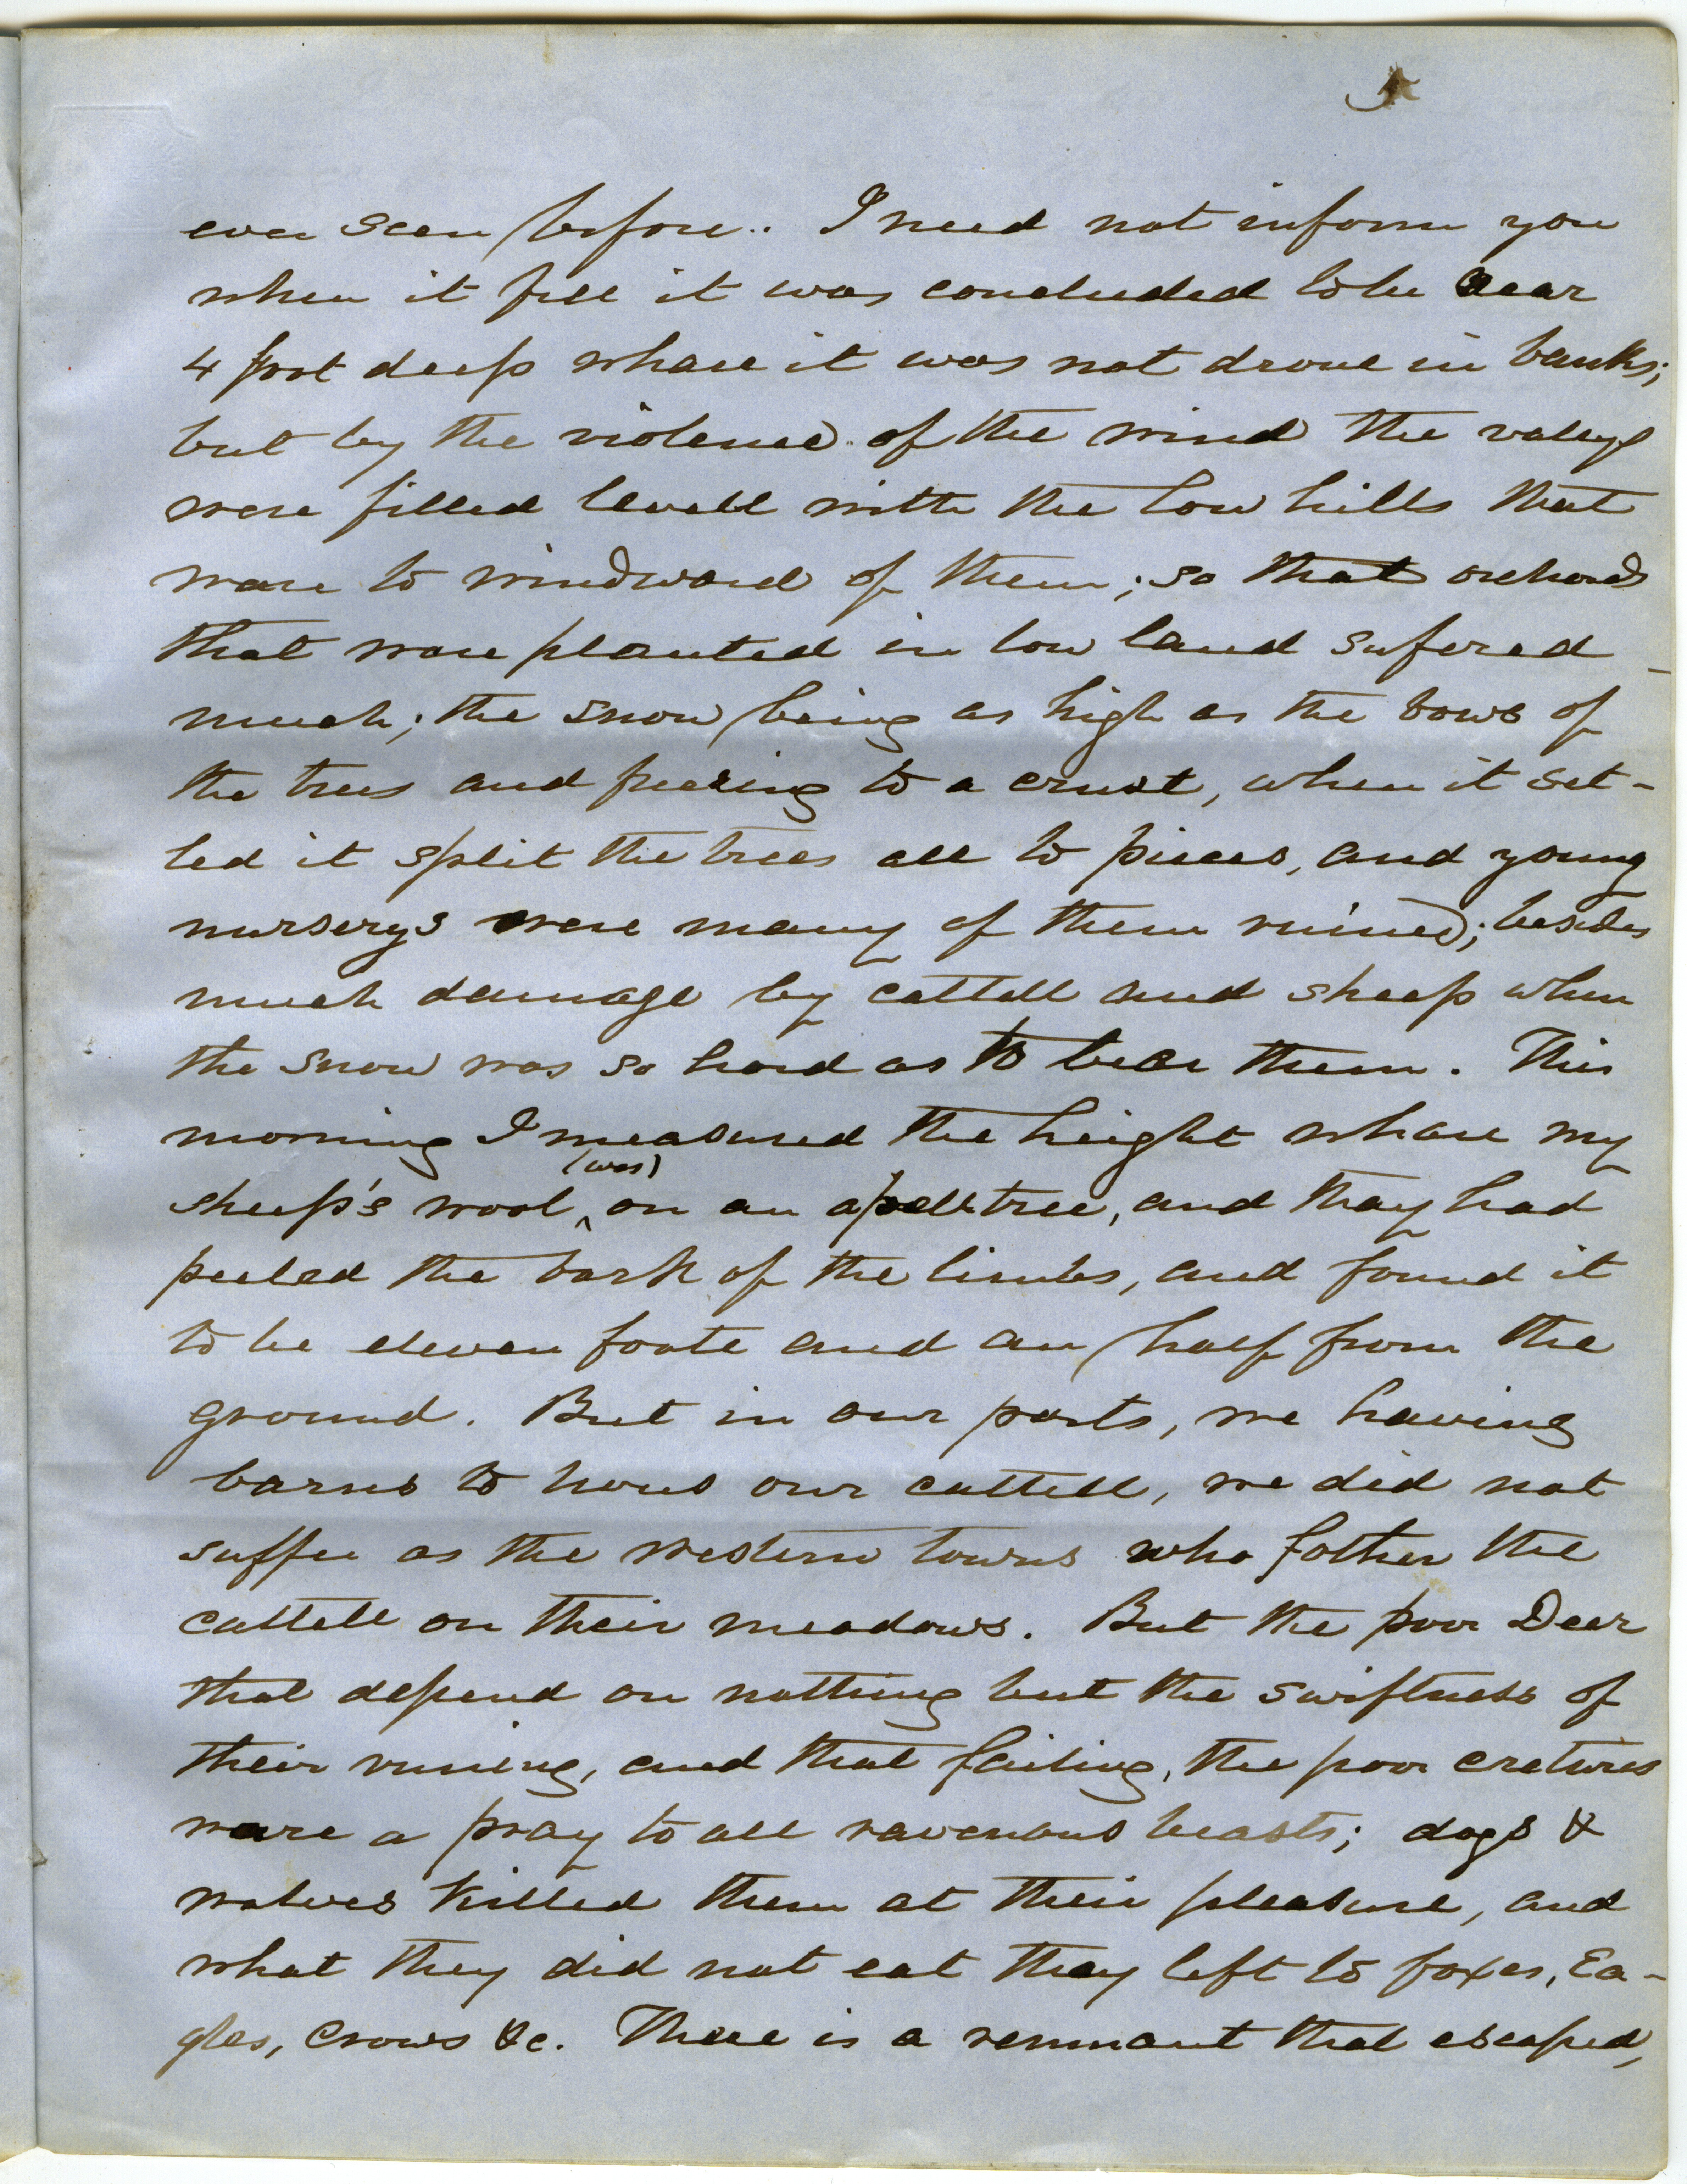 5
ever seen before.. I need not inform you
when it fell it was concluded to be near
4 foot deep whare it was not drove in banks;
but by the violence of the wind the valeys
were filled levell with the low hills that
ware to windward of them; so that orchards
that ware planted in low land sufered
much; the snow being as high as the bows of
the trees and freezing to a crust, when it set-
led it split the trees all to pieces, and young
nurserys were many of them ruined; besides
much damage by cattell and sheep when
the snow was so hard as to bear them. This
morning I measured the height whare my
sheep's wool (was) on an apell tree, and thay had
peeled the bark of the limbs, and found it
to be eleven foote and an half from the
ground. But in our parts, we having
barns to hous our cattell, we did not
suffer as the western towns who fother the
cattell on their meadows. But the poor Dear
that depend on nothing but the swiftness of
their runing, and that failing, the poor cretures
ware a pray to all ravenous beasts; dogs &
wolves killed them at their pleasure, and
what they did not eat thay left to foxes, Ea-
gles, Crows &c. There is a remnant that escaped,